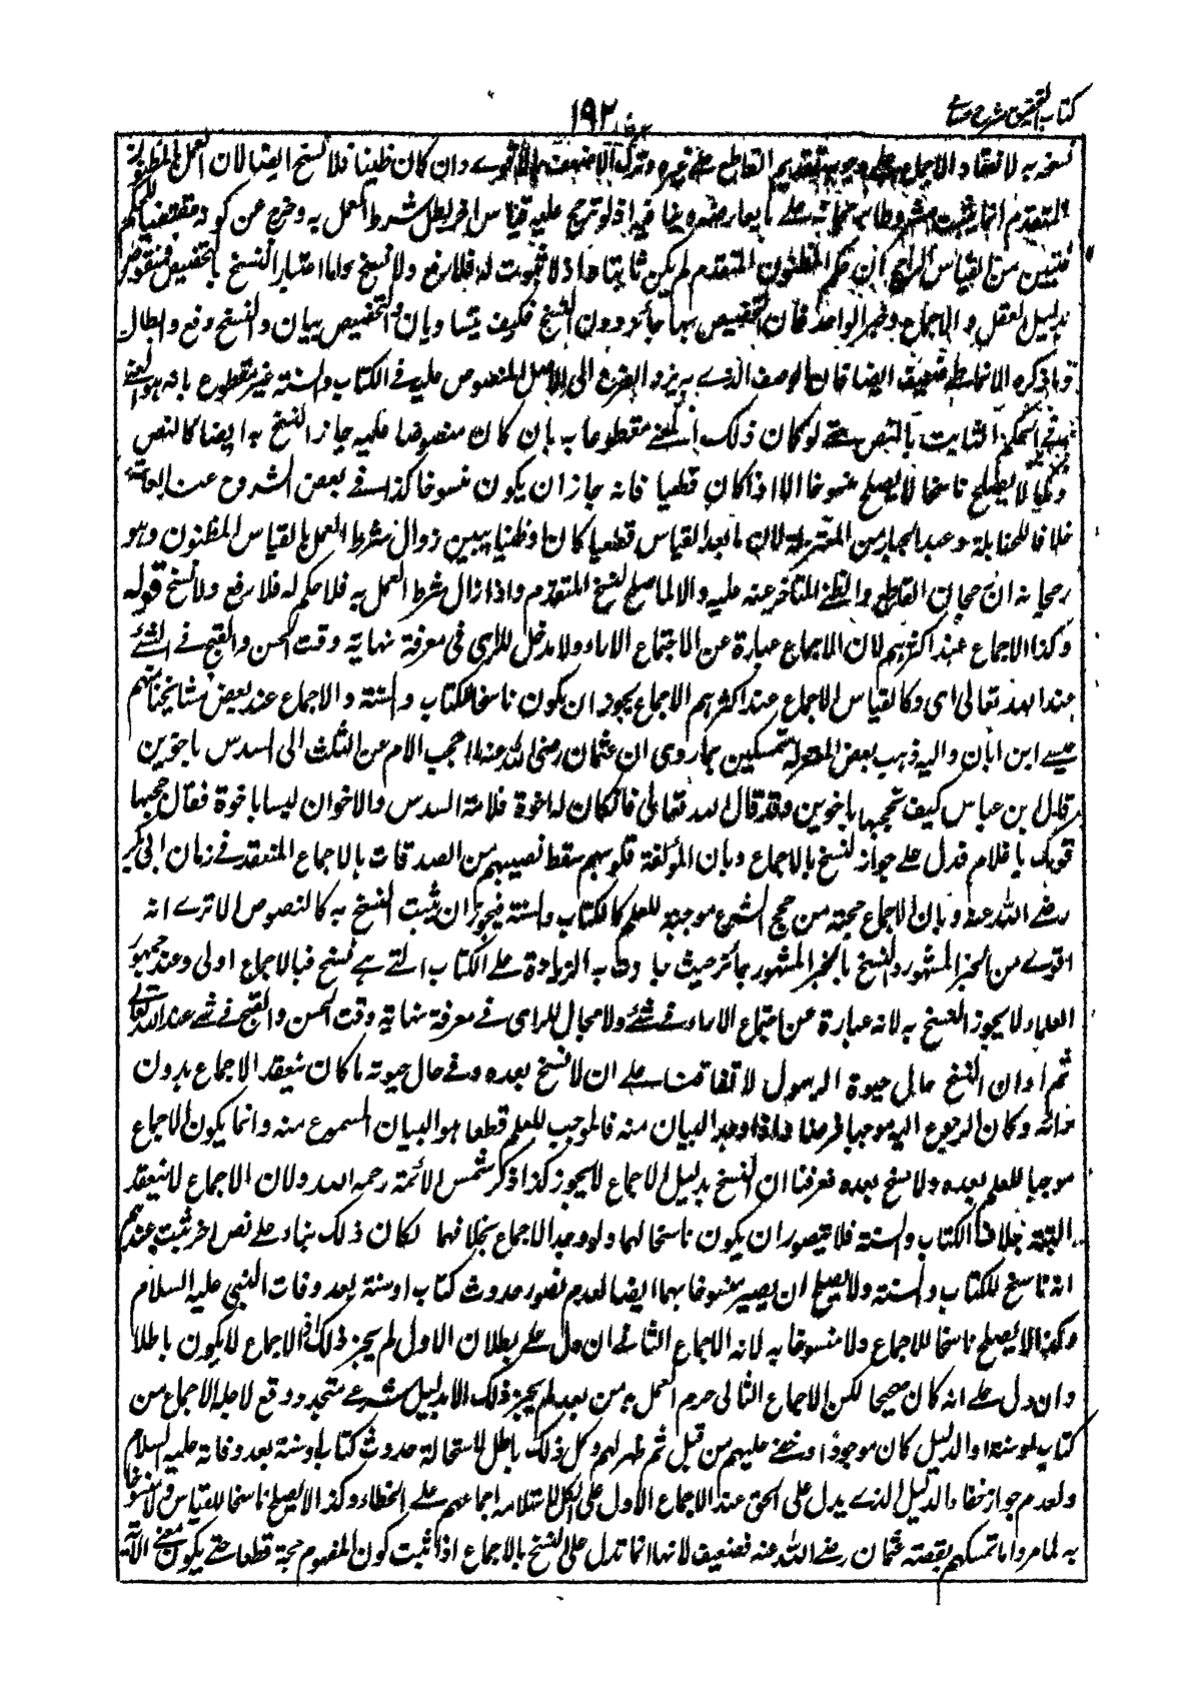 كتاب التحقيق شرح حسامي
١٩٢
نسخه به لانعقاد الاجماع على وجوب تقديم القاطع على غيره وترك الاضعف بالاقوى وان كان ظنيا فلا نسخ ايضا لان العمل بالمظنون
المتقدم انما يثبت مشروطا برجحانه على ما يعارضه وينافيه اذ لو ترجح عليه قياس اخر بطل شرط العمل به وخرج عن كونه مقتضيا للحكم
فتبين من القياس الراجح ان حكم المظنون المتقدم لم يكن ثابتا واذ لا ثبوت له فلا رفع ولا نسخ واما اعتبار النسخ بالتخصيص فمنقوض
بدليل العقل والاجماع وخبر الواحد فان التخصيص بها جائز دون النسخ فكيف يتساويان والتخصيص بيان والنسخ رفع وابطال
وما ذكره الانماطي ضعيف ايضا فان الوصف الذي به يرد الفرع الى الاصل المنصوص عليه في الكتاب والسنة غير مقطوع بانه هو المعنى
في الحكم الثابت بالنص حتى لو كان ذلك المعنى مقطوعا به بان كان منصوصا عليه جاز النسخ به ايضا كالنص
وكما لا يصلح ناسخا لا يصلح منسوخا الا اذا كان قطعيا فانه جاز ان يكون منسوخا كذا في بعض الشروح
خلافا للحنابلة وعبد الجبار من المعتزلة لان ما بعد القياس قطعيا كان او ظنيا يبين زوال شرط العمل بالقياس المظنون وهو
رجحانه ان رجحان القاطع والظني المتاخر عنه عليه والا لما صلح لنسخ المتقدم واذا زال شرط العمل به فلا حكم له فلا رفع ولا نسخ قوله
وكذا الاجماع عند اكثرهم لان الاجماع عبارة عن الاجتماع الاراء ولا مدخل للراى فى معرفة نهاية وقت الحسن والقبح في الشئ
عند الله تعالى اى وكالقياس الاجماع عند اكثرهم الاجماع يجوز ان يكون ناسخا للكتاب والسنة والاجماع عند بعض مشائخنا منهم
عيسى ابن ابان واليه ذهب بعض المعتزلة متمسكين بما روى ان عثمان رضى الله عنه لما حجب الام عن الثلث الى السدس باخوين
قال ابن عباس كيف تحجبها باخوين وقد قال الله تعالى فان كان له اخوة فلامه السدس والاخوان ليسا باخوة فقال حجبها
قومك يا غلام فدل على جواز النسخ بالاجماع وبان المؤلفة قلوبهم سقط نصيبهم من الصدقات بالاجماع المنعقد في زمان ابي بكر
رضي الله عنه وبان الاجماع حجة من حجج الشرع موجبة للعلم كالكتاب والسنة فيجوز ان يثبت النسخ به كالنصوص الا ترى انه
اقوى من الخبر المشهور والنسخ بالخبر المشهور جائز حيث جازت به الزيادة على الكتاب التي هي نسخ فبالاجماع اولى وعند جمهور
العلماء لا يجوز النسخ به لانه عبارة عن اجتماع الاراء في شئ ولا مجال للراى في معرفة نهاية وقت الحسن والقبح في شئ عند الله تعالى
ثم اوان النسخ حال حيوة الرسول لاتفاقنا على ان لا نسخ بعده وفي حال حيوته ما كان ينعقد الاجماع بدون
رائه وكان الرجوع اليه موجبا فرضا واذا وجد البيان منه فالموجب للعلم قطعا هو البيان المسموع منه وانما يكون الاجماع
موجبا للعلم بعده ولا نسخ بعده فعرفنا ان النسخ بدليل الاجماع لا يجوز كذا ذكر شمس الائمة رحمه الله ولان الاجماع لا ينعقد
البتة بخلاف الكتاب والسنة فلا يتصور ان يكون ناسخا لهما ولو وجد الاجماع بخلافهما لكان ذلك بناء على نص اخر ثبت عندهم
انه ناسخ للكتاب والسنة ولا يصلح ان يصير منسوخا بهما ايضا لعدم تصور حدوث كتاب او سنة بعد وفات النبي عليه السلام
وكذا لا يصلح ناسخا للاجماع ولا منسوخا به لانه الاجماع الثاني ان دل على بطلان الاول لم يجز ذلك اذ الاجماع لا يكون باطلا
وان دل على انه كان صحيحا لكن الاجماع الثانى حرم العمل به من بعد لم يجز ذلك الا بدليل شرعي متجدد وقع لاجله الاجماع من
كتاب او سنة او الدليل كان موجودا وخفى عليهم من قبل ثم ظهر لهم وكل ذلك باطل لاستحالة حدوث كتاب او سنة بعد وفاته عليه السلام
ولعدم جواز خفاء الدليل الذي يدل على الحق عند الاجماع الاول على الكل لاستلزامه اجماعهم على الخطاء وكذا لا يصلح ناسخا للقياس ولا منسوخا
به لما مر واما تمسكهم بقصة عثمان رضي الله عنه فضعيف لانها انما تدل على النسخ بالاجماع اذا ثبت كون المفهوم حجة قطعا حتى يكون معنى الآية